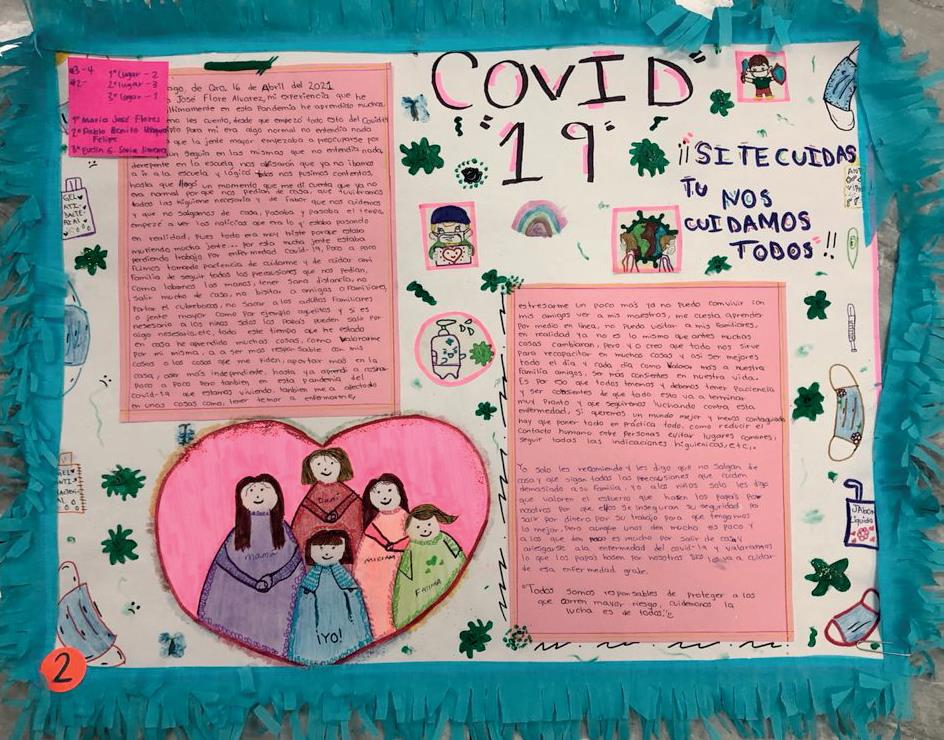 #3-4 1º lugar - 2
#2- 2º lugar - 3
3º lugar - 1
1º Maria José Flores
2º Pablo Benito
Felipe
3º Evelin G.
COVID"
"19"
¡¡SI TE CUIDAS
TU NOS
CUIDAMOS
TODOS"!!
de Qro, 16 de Abril del 2021
José Flore Alvarez, mi experiencia que he
en esta Pandemia he aprendido muchas
les cuento, desde que empezó todo esto del Covid
para mi era algo normal no entendía nada
que la jente mayor empezaba a preocuparse por
seguia en las mismas que no entendia nada,
derepente en la escuela nos abisaron que ya no ibamos
a ir a la escuela y lógico todos nos pusimos contentos,
hasta que llegó un momento que me di cuenta que ya no
era normal por que nos pedian de casa, que tuvieramos
todos las higiene necesaria y de fabor que nos cuidemos
y que no salgamos de casa, pasaba y pasaba el tiempo
empezé a ver las noticias que era lo y estaba pasando
en realidad, Pues todo era muy triste porque estaba
muriendo mucha jente... por esta mucha jente estaba
perdiendo trabajo por enfermedad covid-19, Poco a poco
fuimos tomando paciencia de cuidarme y de cuidar ami
familia de seguir todos las precausiones que nos pedian,
como labarnos las manos, tener sana distancia, no
salir mucho de casa, no bisitar a amigos o familiares,
Portar el cubrebocas, no sacar a los adultos familiares
o jente mayor como por ejemplo aguelitos y si es
nesesario a los niños solo los papás pueden salir por
algo nesesario, etc, todo este tiempo que he estado
en casa he aprendido muchas cosas, como valorarme
por mi misma, a a ser mas responsable con mis
cosas o las cosas que me piden, aportar mas en la
casa, ser más independiente, hasta ya aprendi a cosinar
Poco a poco Pero tanbien en esta pandemia del
covid-19 que estamos viviendo, tanbien me a afectado
en unas cosas como, tener temor a enfermarme,
estresarme un poco más ya no puedo convivir con
mis amigos ver a mis maestros, me cuesta aprender
por medio en línea, no puedo visitar a mis familiares,
en realidad ya no es lo mismo que antes muchas
cosas cambiaron, pero yo creo que todo nos sirve
para recapacitar en muchas cosas y asi ser mejores
todo el dia y cada día como valorar más a nuestra
familia amigos, ser más consientes en nuestra vida.
Es por eso que todos tenemos y debemos tener paciencia
y ser consientes de que todo esto va a terminar
muy pronto y que seguiremos luchando contra esta
enfermedad, si queremos un mundo mejor y menos contagiado
hay que poner todo en práctica todo, como reducir el
contacto humano entre personas evitar lugares comunes,
seguir todas las indicaciones higuienicas, etc,.
Yo solo les recomiendo y les digo que no salgan de
casa y que sigan todas las precausiones que cuiden
demasiado a su familia, Yo a los niños solo les digo
que valoren el esfuerzo que hacen los papás por
nosotros por que ellos se inseguran su seguridad por
salir por dinero por su trabajo para que tengamos
lo mejor, Pero aunque unos den mucho es poco y
a los que den poco es mucho por salir de casa y
ariesgarse ala enfermedad del covid-19 y valoremos
lo que los papas hasen por nosotros
de esa enfermedad grabe.
"Todos somos responsables de proteger a los
que corren mayor riesgo, cuidemonos la
lucha es de todos"
GEL
ANTI
BACTE
RIAL
GEL
ANTI
BACTE
RIAL
JABON
Liquido
mamá
MIRIAM
FATIMA
¡YO!
2